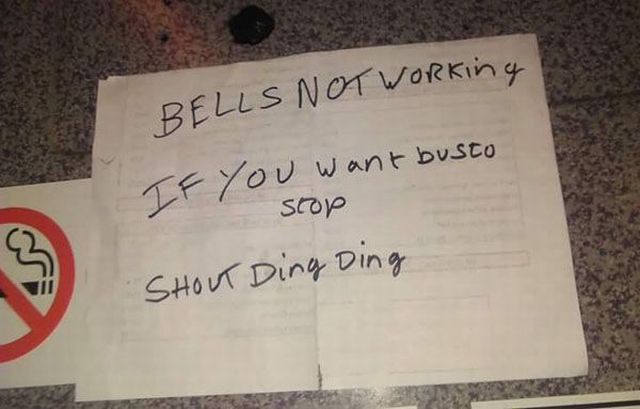 BELLS NOT WORKing
IF YOU want bus to
stop
SHOUT Ding Ding